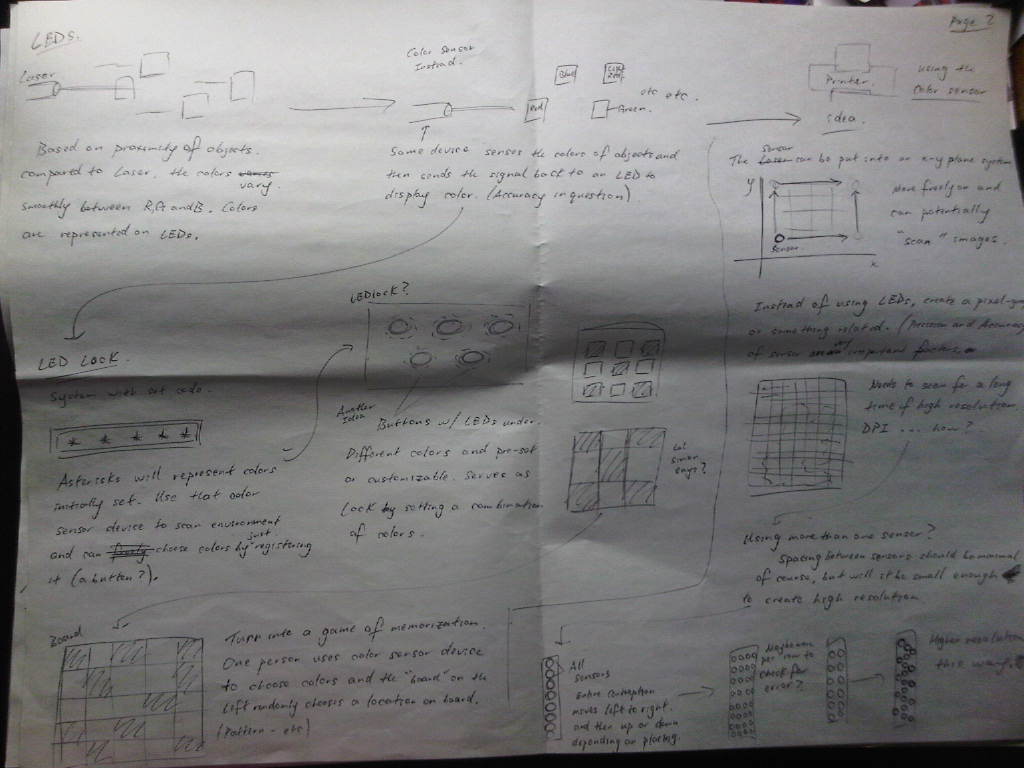 Page 2
LEDs.
Laser
Based on proximity of objects
compared to Laser, the colors
vary
smoothly between R, G and B. Colors
are represented on LEDs.
Color Sensor
Instead.
Blue
Red
Green.
etc etc.
Same device senses the colors of objects and
then sends the signal back to an LED to
display color. (Accuracy in question)
Printer
idea.
Using the
color sensor
Sensor
The Laser can be put into an x-y plane system
y
x
Sensor
Move freely on and
can potentially
"scan" images.
Instead of using LEDs, create a
or something related. (Precision and Accuracy
of sensor important factors.
Needs to scan for a long
time if high resolution
DPI ... how?
Using more than one sensor?
Spacing between sensors should be minimal
of course, but will it be small enough
to create high resolution
LED Lock.
System with set code.
* * * * *
Asterisks will represent colors
initially set. Use that color
sensor device to scan environment
and can choose colors by just registering
it (a button?).
LED lock?
Another
Idea
Buttons w/ LEDs under.
Different colors and pre-set
or customizable. Serves as
Lock by setting a combination
of colors.
simon
says?
Board
Turn into a game of memorization.
One person uses color sensor device
to choose colors and the "board" on the
left randomly chooses a location on board.
(Pattern - etc)
All
sensors
Entire contraption
moves left to right.
and then up or down
depending on placing.
Maybe
per row to
check for
error?
Higher resolution
this way.